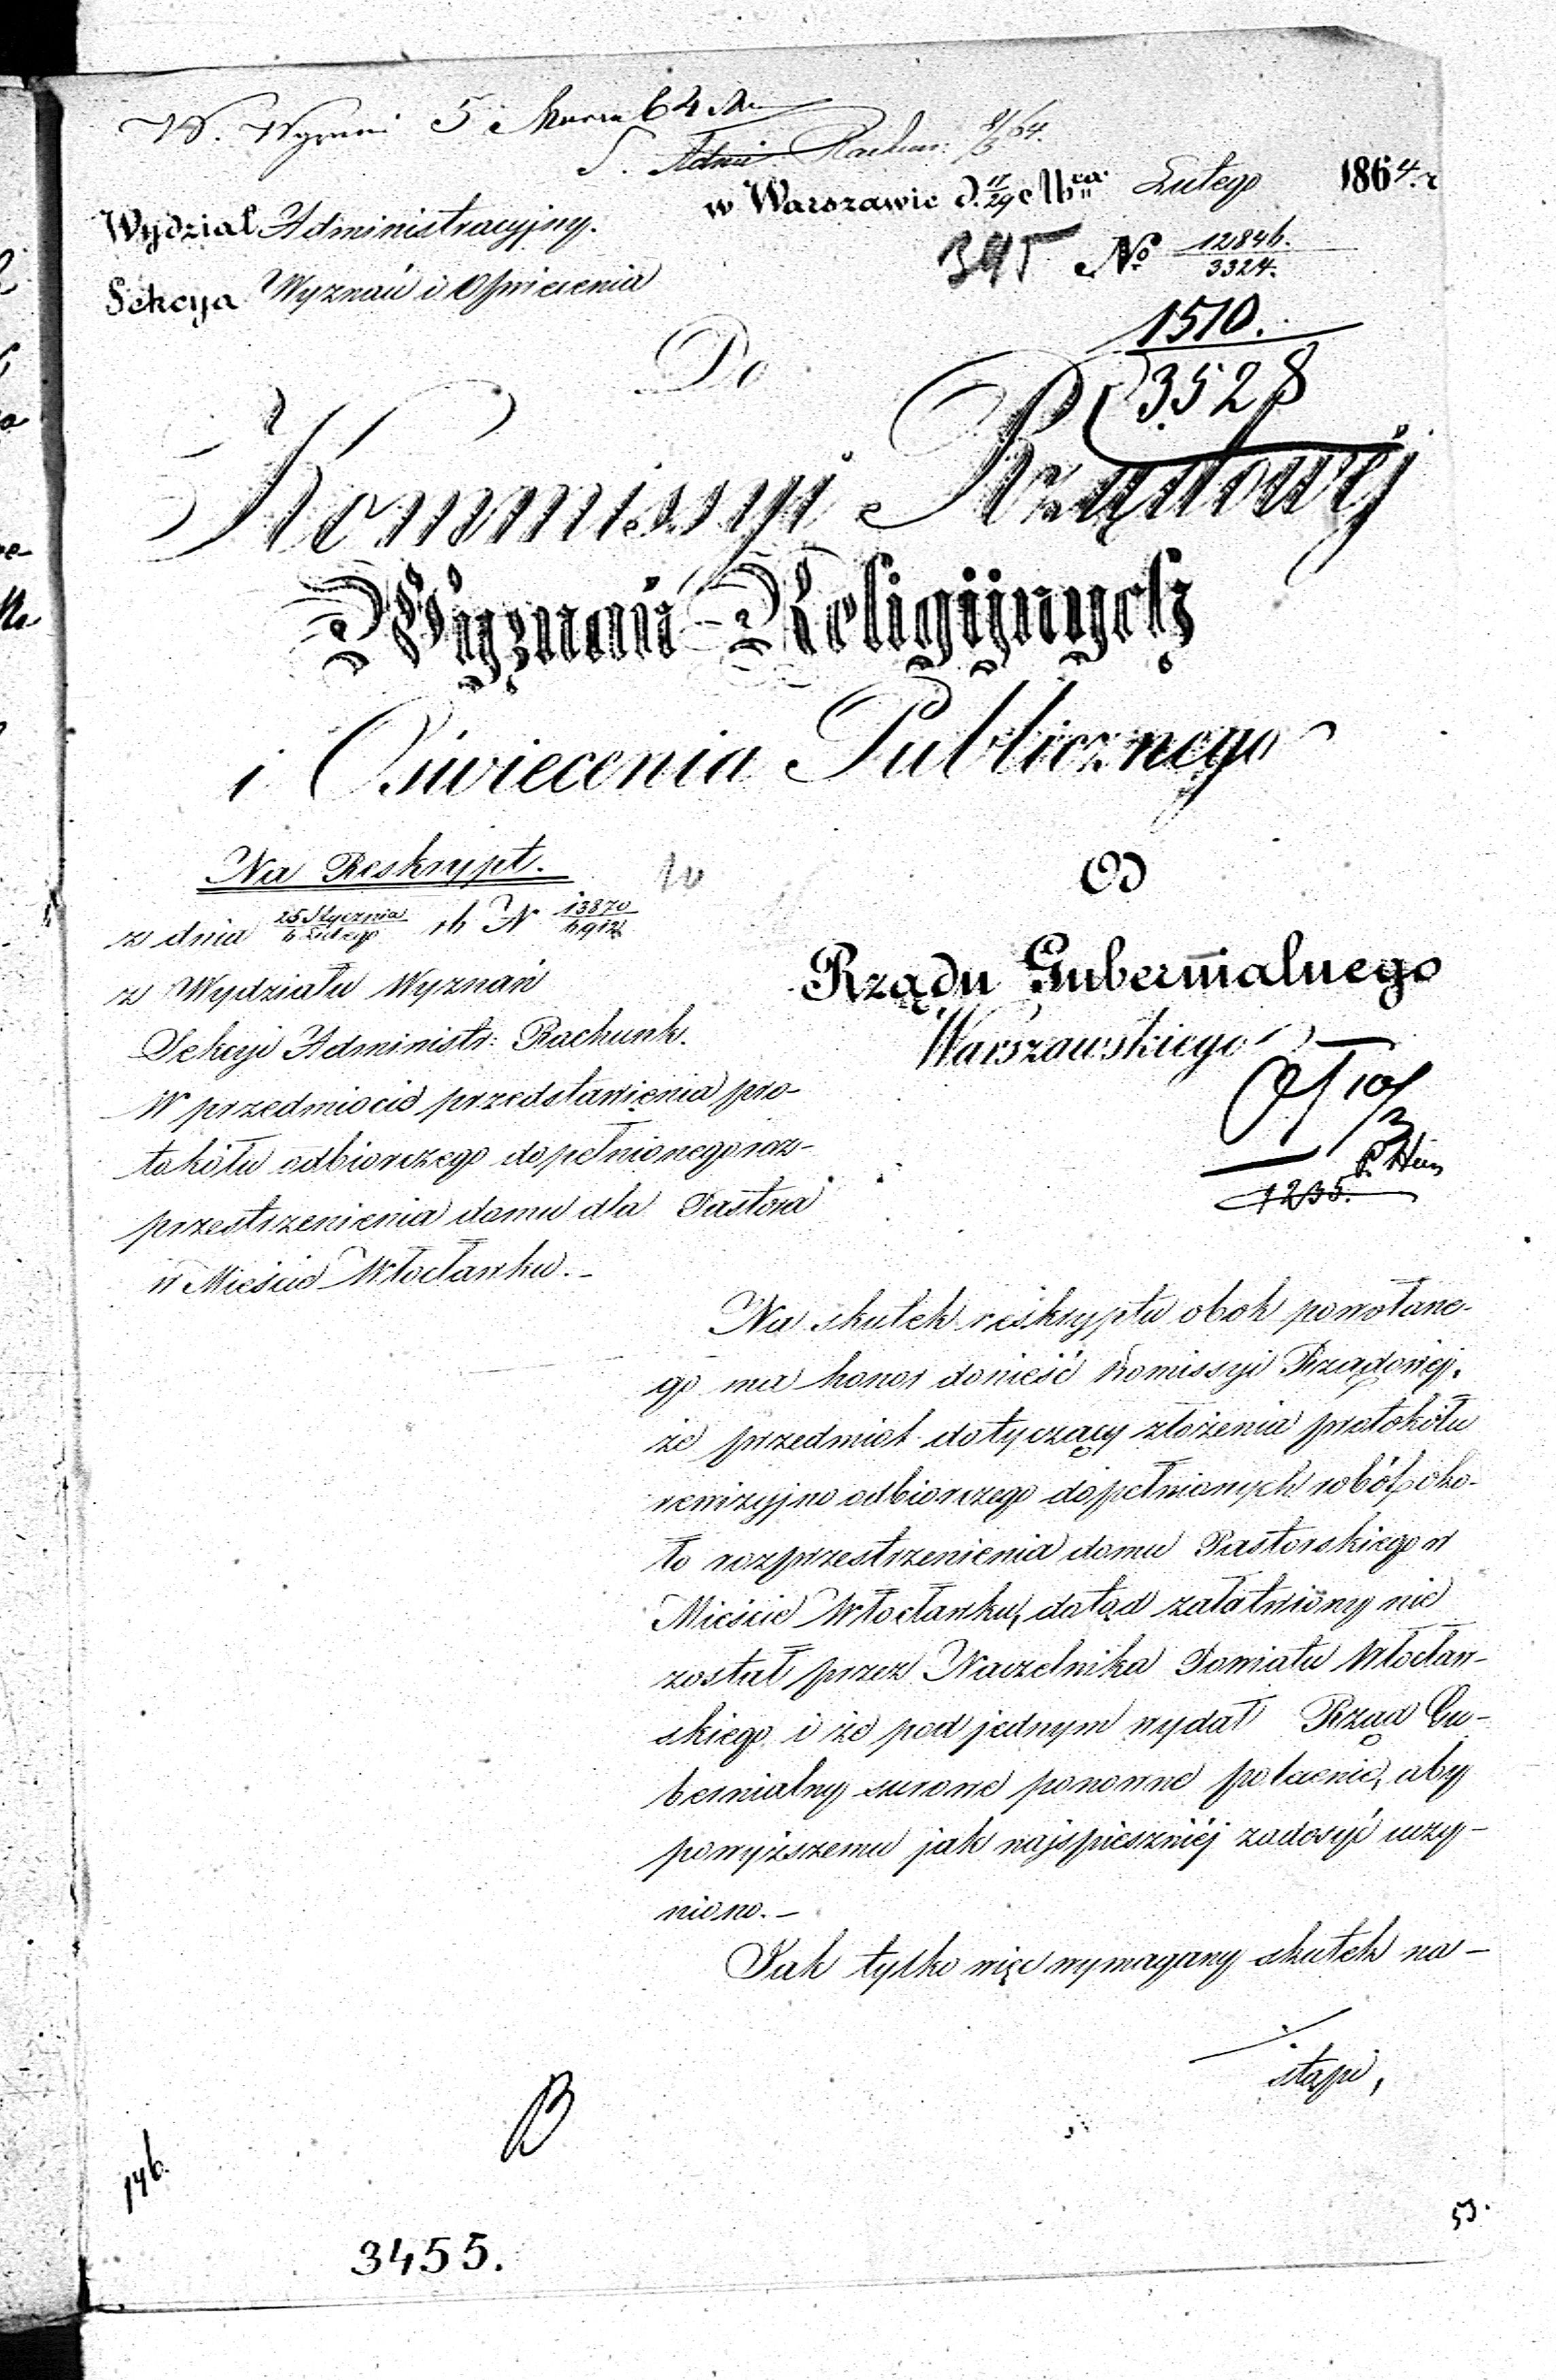 W. Wyznań 5 Marca 64
S. Admi Rachun: 8/3 64.
w Warszawie d. 17/29 Lutego 1864. r
Wydział Administracyjny.
345 № 12846./3324.
Sekcya Wyznań i Oświecenia
1510.
3528
Do
Kommissyi Rządowéj
Wyznań Religijnych
i Oświecenia Publicznego
Od
Rządu Gubernialnego
Warszawskiego
10/3
1235.
Na Reskrypt.
z dnia 25 Stycznia/6 Lutego rb N 13870/6912
z Wydziału Wyznań
Sekcyi Administr: Rachunk.
W przedmiocie przedstawienia pro-
tokółu odbiorczego dopełnionego roz-
przestrzenienia domu dla Pastora
w Mieście Włocławku. -
Na skutek reskryptu obok powołane-
go ma honor donieść Komissyi Rządowéj,
że przedmiot dotyczący złożenia protokółu
rewizyjno odbiorczego dopełnionych robót oko-
ło rozprzestrzenienia domu Pastorskiego w
Mieście Włocławku, dotąd załatwiony nie
został przez Naczelnika Powiatu Włocław-
skiego i że pod jednym wydał Rząd Gu-
bernialny surowe ponowne polecenie, aby
powyższemu jak najspieszniéj zadosyć uczy-
niono. -
Jak tylko więc wymagany skutek na-
stąpi,
B
146.
53.
3455.